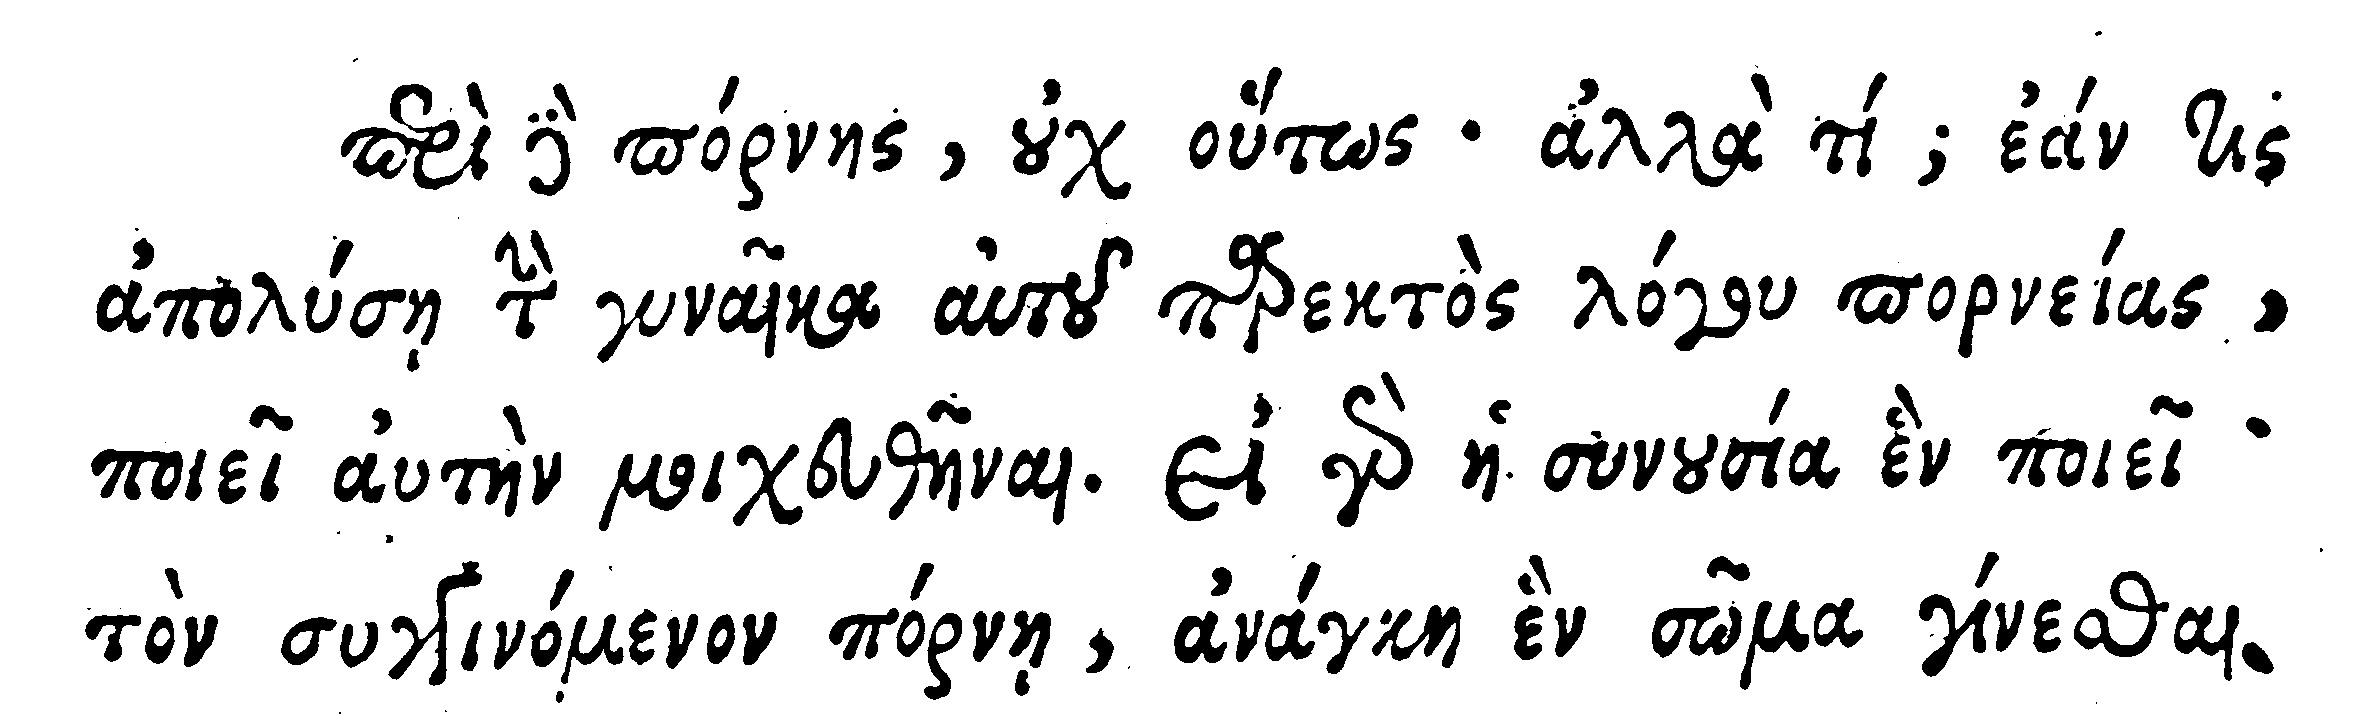 περὶ δὲ πόρνης, οὐχ οὕτως· ἀλλὰ τί; ἐάν τις
ἀπολύσῃ τὴν γυναῖκα αὐτοῦ παρεκτὸς λόγου πορνείας,
ποιεῖ αὐτὴν μοιχευθῆναι. Εἰ γὰρ ἡ συνουσία ἓν ποιεῖ
τὸν συγγινόμενον πόρνῃ, ἀνάγκη ἓν σῶμα γίνεσθαι.